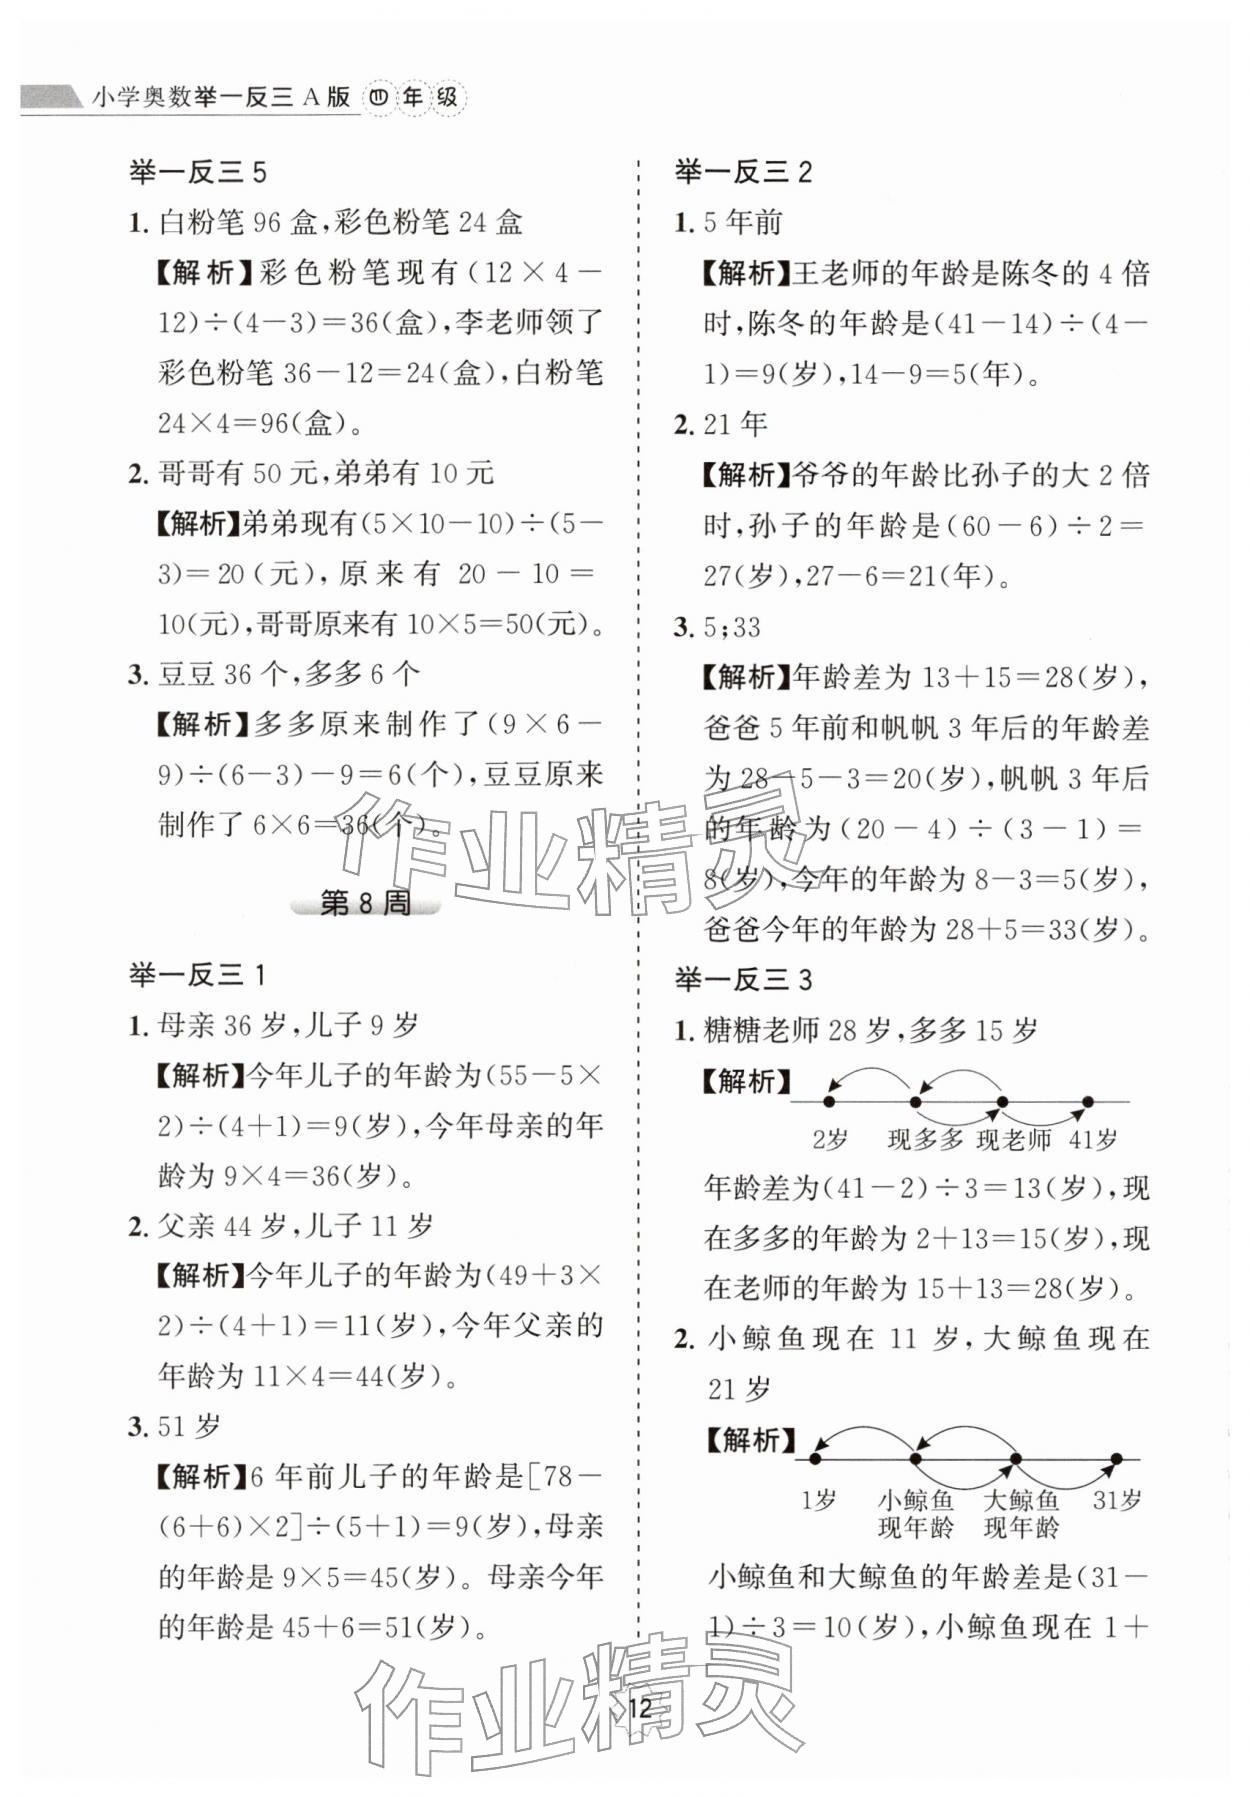 小学奥数举一反三A版 四年级
举一反三5
1. 白粉笔96盒,彩色粉笔24盒
【解析】彩色粉笔现有(12×4-
12)÷(4-3)=36(盒),李老师领了
彩色粉笔36-12=24(盒),白粉笔
24×4=96(盒)。
2. 哥哥有50元,弟弟有10元
【解析】弟弟现有(5×10-10)÷(5-
3)=20(元),原来有20-10=
10(元),哥哥原来有10×5=50(元)。
3. 豆豆36个,多多6个
【解析】多多原来制作了(9×6-
9)÷(6-3)-9=6(个),豆豆原来
制作了6×6=36(个)。
第8周
举一反三1
1. 母亲36岁,儿子9岁
【解析】今年儿子的年龄为(55-5×
2)÷(4+1)=9(岁),今年母亲的年
龄为9×4=36(岁)。
2. 父亲44岁,儿子11岁
【解析】今年儿子的年龄为(49+3×
2)÷(4+1)=11(岁),今年父亲的
年龄为11×4=44(岁)。
3. 51岁
【解析】6年前儿子的年龄是[78-
(6+6)×2]÷(5+1)=9(岁),母亲
的年龄是9×5=45(岁)。母亲今年
的年龄是45+6=51(岁)。
举一反三2
1. 5年前
【解析】王老师的年龄是陈冬的4倍
时,陈冬的年龄是(41-14)÷(4-
1)=9(岁),14-9=5(年)。
2. 21年
【解析】爷爷的年龄比孙子的大2倍
时,孙子的年龄是(60-6)÷2=
27(岁),27-6=21(年)。
3. 5;33
【解析】年龄差为13+15=28(岁),
爸爸5年前和帆帆3年后的年龄差
为28-5-3=20(岁),帆帆3年后
的年龄为(20-4)÷(3-1)=
8(岁),今年的年龄为8-3=5(岁),
爸爸今年的年龄为28+5=33(岁)。
举一反三3
1. 糖糖老师28岁,多多15岁
【解析】
2岁 现多多 现老师 41岁
年龄差为(41-2)÷3=13(岁),现
在多多的年龄为2+13=15(岁),现
在老师的年龄为15+13=28(岁)。
2. 小鲸鱼现在11岁,大鲸鱼现在
21岁
【解析】
1岁 小鲸鱼 大鲸鱼 31岁
现年龄 现年龄
小鲸鱼和大鲸鱼的年龄差是(31-
1)÷3=10(岁),小鲸鱼现在1+
12
作业精灵
作业精灵